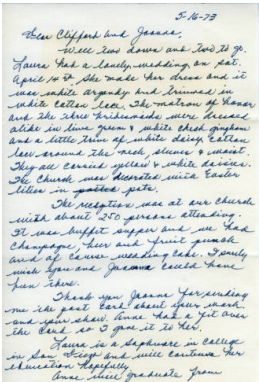 5-16-73
Dear Clifford and Joanna,
Well two down and two to go.
Laura had a lovely wedding on Sat.
April 14th. She made her dress and it
was white organdy and trimmed in
white cotton lace. The matron of honor
and the three bridesmaids were dressed
alike in lime green & white check gingham
and a little trim of white daisy cotton
lace around the neck, sleeves & waist.
They all carried yellow & white daisies.
The Church was decorated with Easter
lilies in pots.
The reception was at our church
with about 250 persons attending.
It was buffet supper and we had
champagne, beer and fruit punch
and of course wedding cake. I surely
wish you and Joanna could have
been there.
Thank you Joanna for sending
me the post card about your work
and your show. Anne had a fit over
the card so I gave it to her.
Laura is a Sophmore in college
in San Diego and will continue her
education hopefully.
Anne will graduate from